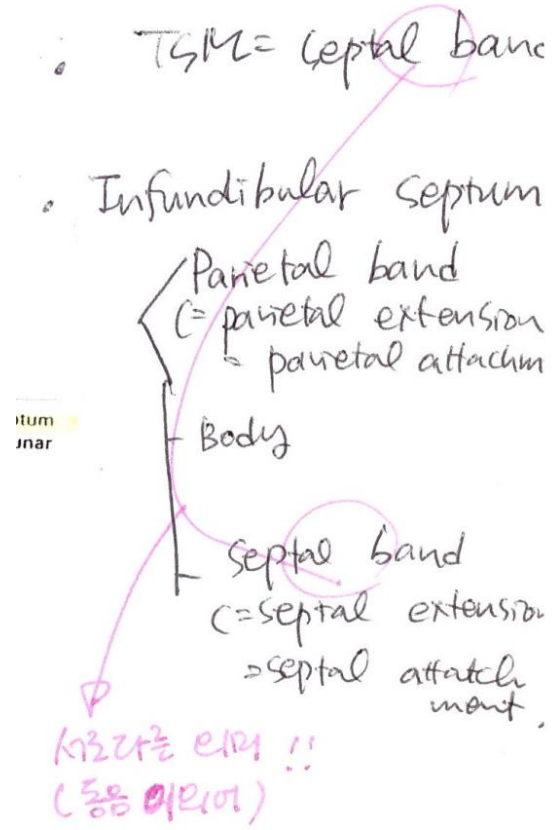 • TSM = Septal banc
• Infundibular Septum
Parietal band
(= parietal extension
= parietal attachm
otum
unar
Body
Septal band
(= septal extension
= septal attatch
ment.
서로다른 의미 !!
(동음 이의어)